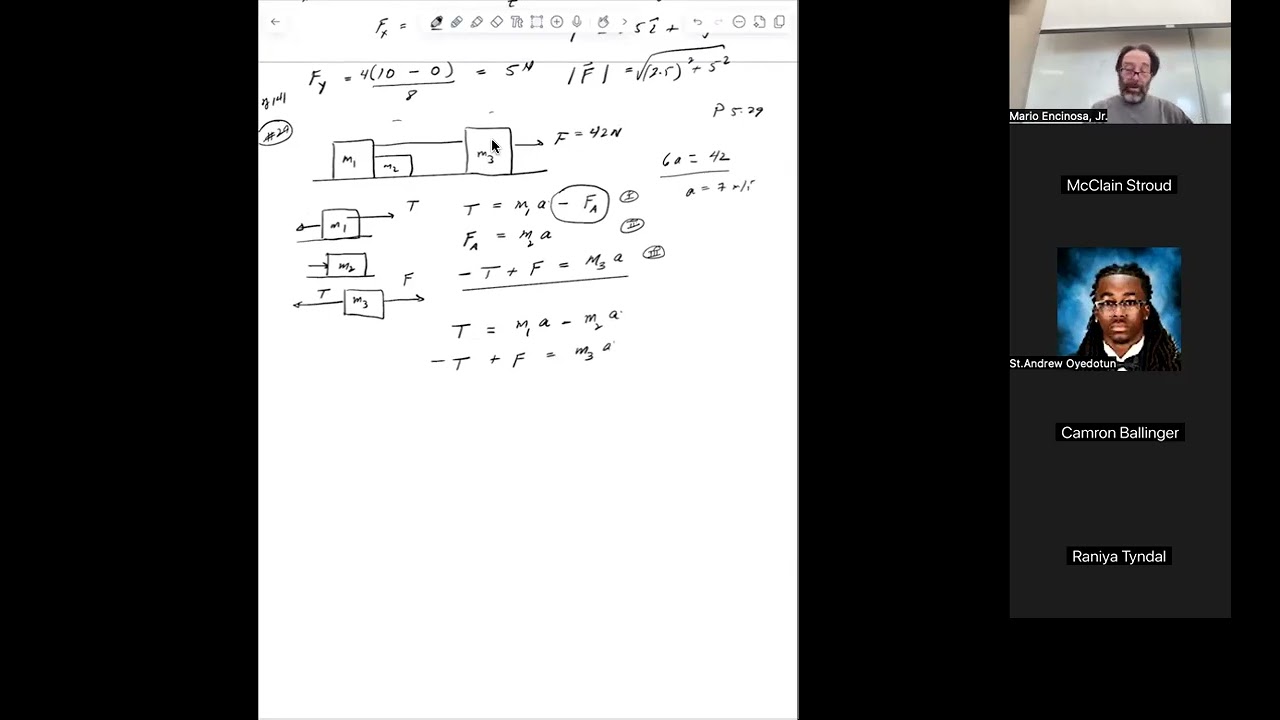 F_x =
5i +
F_y = 4(10 - 0) / 8 = 5 N
|F| = √(2.5)² + 5²
#29
P 5.29
m1
m2
m3
F = 42N
6a = 42
a = 7 m/s
m1
T
T = m1 a - F_A I
F_A = m2 a II
m2
- T + F = m3 a III
T
m3
F
T = m1 a - m2 a
- T + F = m3 a
Mario Encinosa, Jr.
McClain Stroud
St.Andrew Oyedotun
Camron Ballinger
Raniya Tyndal